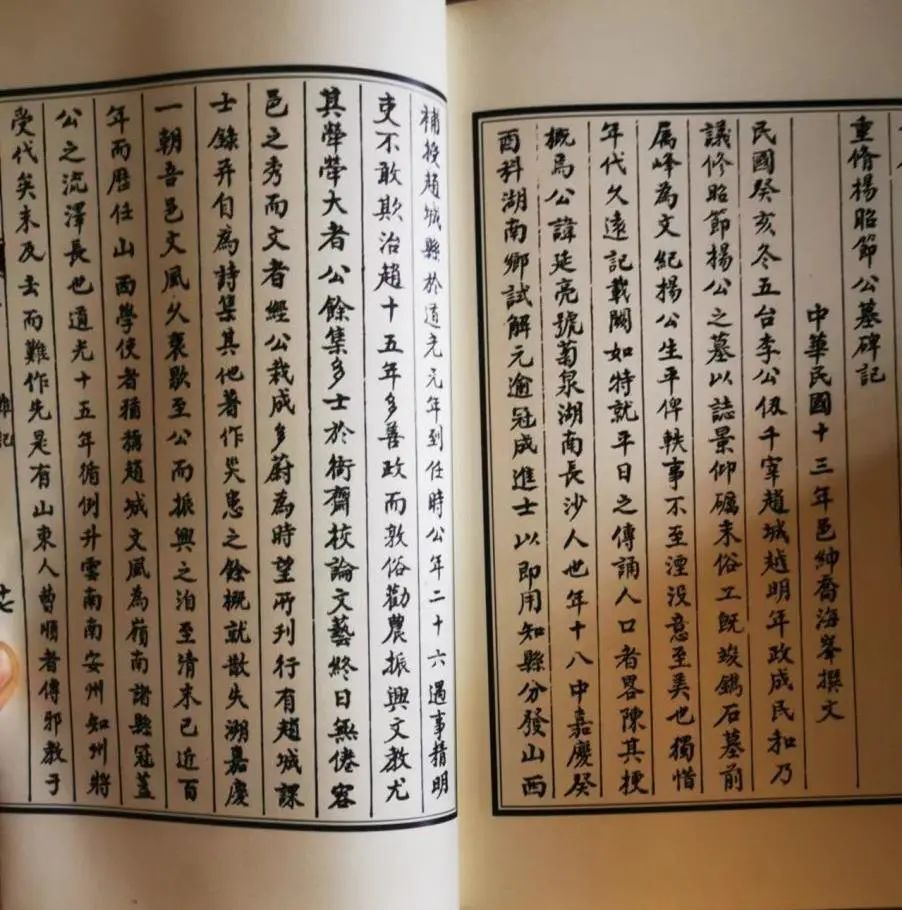 重脩楊昭節公墓碑記
中華民國十三年邑紳喬海峯撰文
民國癸亥冬五台李公伋千宰趙城越明年政成民和乃
議修昭節揚公之墓以誌景仰礪末俗工既竣鐫石墓前
属峰為文紀揚公生平俾軼事不至湮没意至美也獨惜
年代久遠記載闕如特就平日之傳誦人口者畧陳其梗
概焉公諱延亮號菊泉湖南長沙人也年十八中嘉慶癸
酉科湖南鄉試解元逾冠成進士以即用知縣分發山西
補授趙城縣於道光元年到任時公年二十六遇事精明
吏不敢欺治趙十五年多善政而敦俗勸農振興文教尤
其犖犖大者公餘集多士於衙齋抆論文藝終日無倦容
邑之秀而文者經公栽成多蔚為時望所刊行有趙城課
士錄并自為詩集其他著作災患之餘概就散失溯嘉慶
一朝吾邑文風久衰歇至公而振興之洎至清末已近百
年而歷任山西學使者猶稱趙城文風為嶺南諸縣冠蓋
公之流澤長也道光十五年循例升雲南南安州知州將
受代矣未及去而難作先是有山東人曹順者傳邪教于
雜記
十七